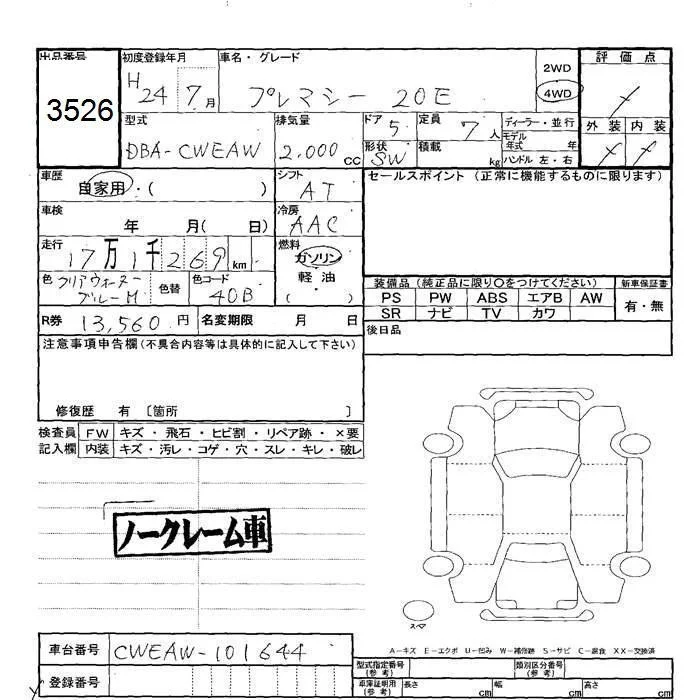 出品番号 初度登録年月 車名・グレード 2WD 評価点
3526 H 24 7月 プレマシー 20E 4WD
型式 排気量 ドア 定員 ディーラー・並行 外装 内装
DBA-CWEAW 2.000 CC 5 7 人 モデル年式 年
形状 SW 積載 kg ハンドル 左・右
車歴 シフト セールスポイント (正常に機能するものに限ります)
自家用・( ) AT
車検 冷房
年 月( 日) AAC
走行 燃料
17万1千269 km ガソリン
色 クリアウォーターブルーM 色替 色コード 40B 軽・油 ( )
装備品(純正品に限り○をつけてください) 新車保証書
PS PW ABS エアB AW 有・無
SR ナビ TV カワ
R券 13,560 円 名変期限 月 日
後日品
注意事項申告欄(不具合内容等は具体的に記入して下さい)
修復歴 有 〔箇所 〕
検査員 FW キズ・飛石・ヒビ割・リペア跡・×要
記入欄 内装 キズ・汚レ・コゲ・穴・スレ・キレ・破レ
ノークレーム車
スペア
A-キズ E-エクボ U-凹み W-補修跡 S-サビ C-腐食 XX-交換済
車台番号 CWEAW-101644
登録番号
型式指定番号 (参考) 類別区分番号 (参考)
車庫証明用 (参考) 長さ cm 幅 cm 高さ cm